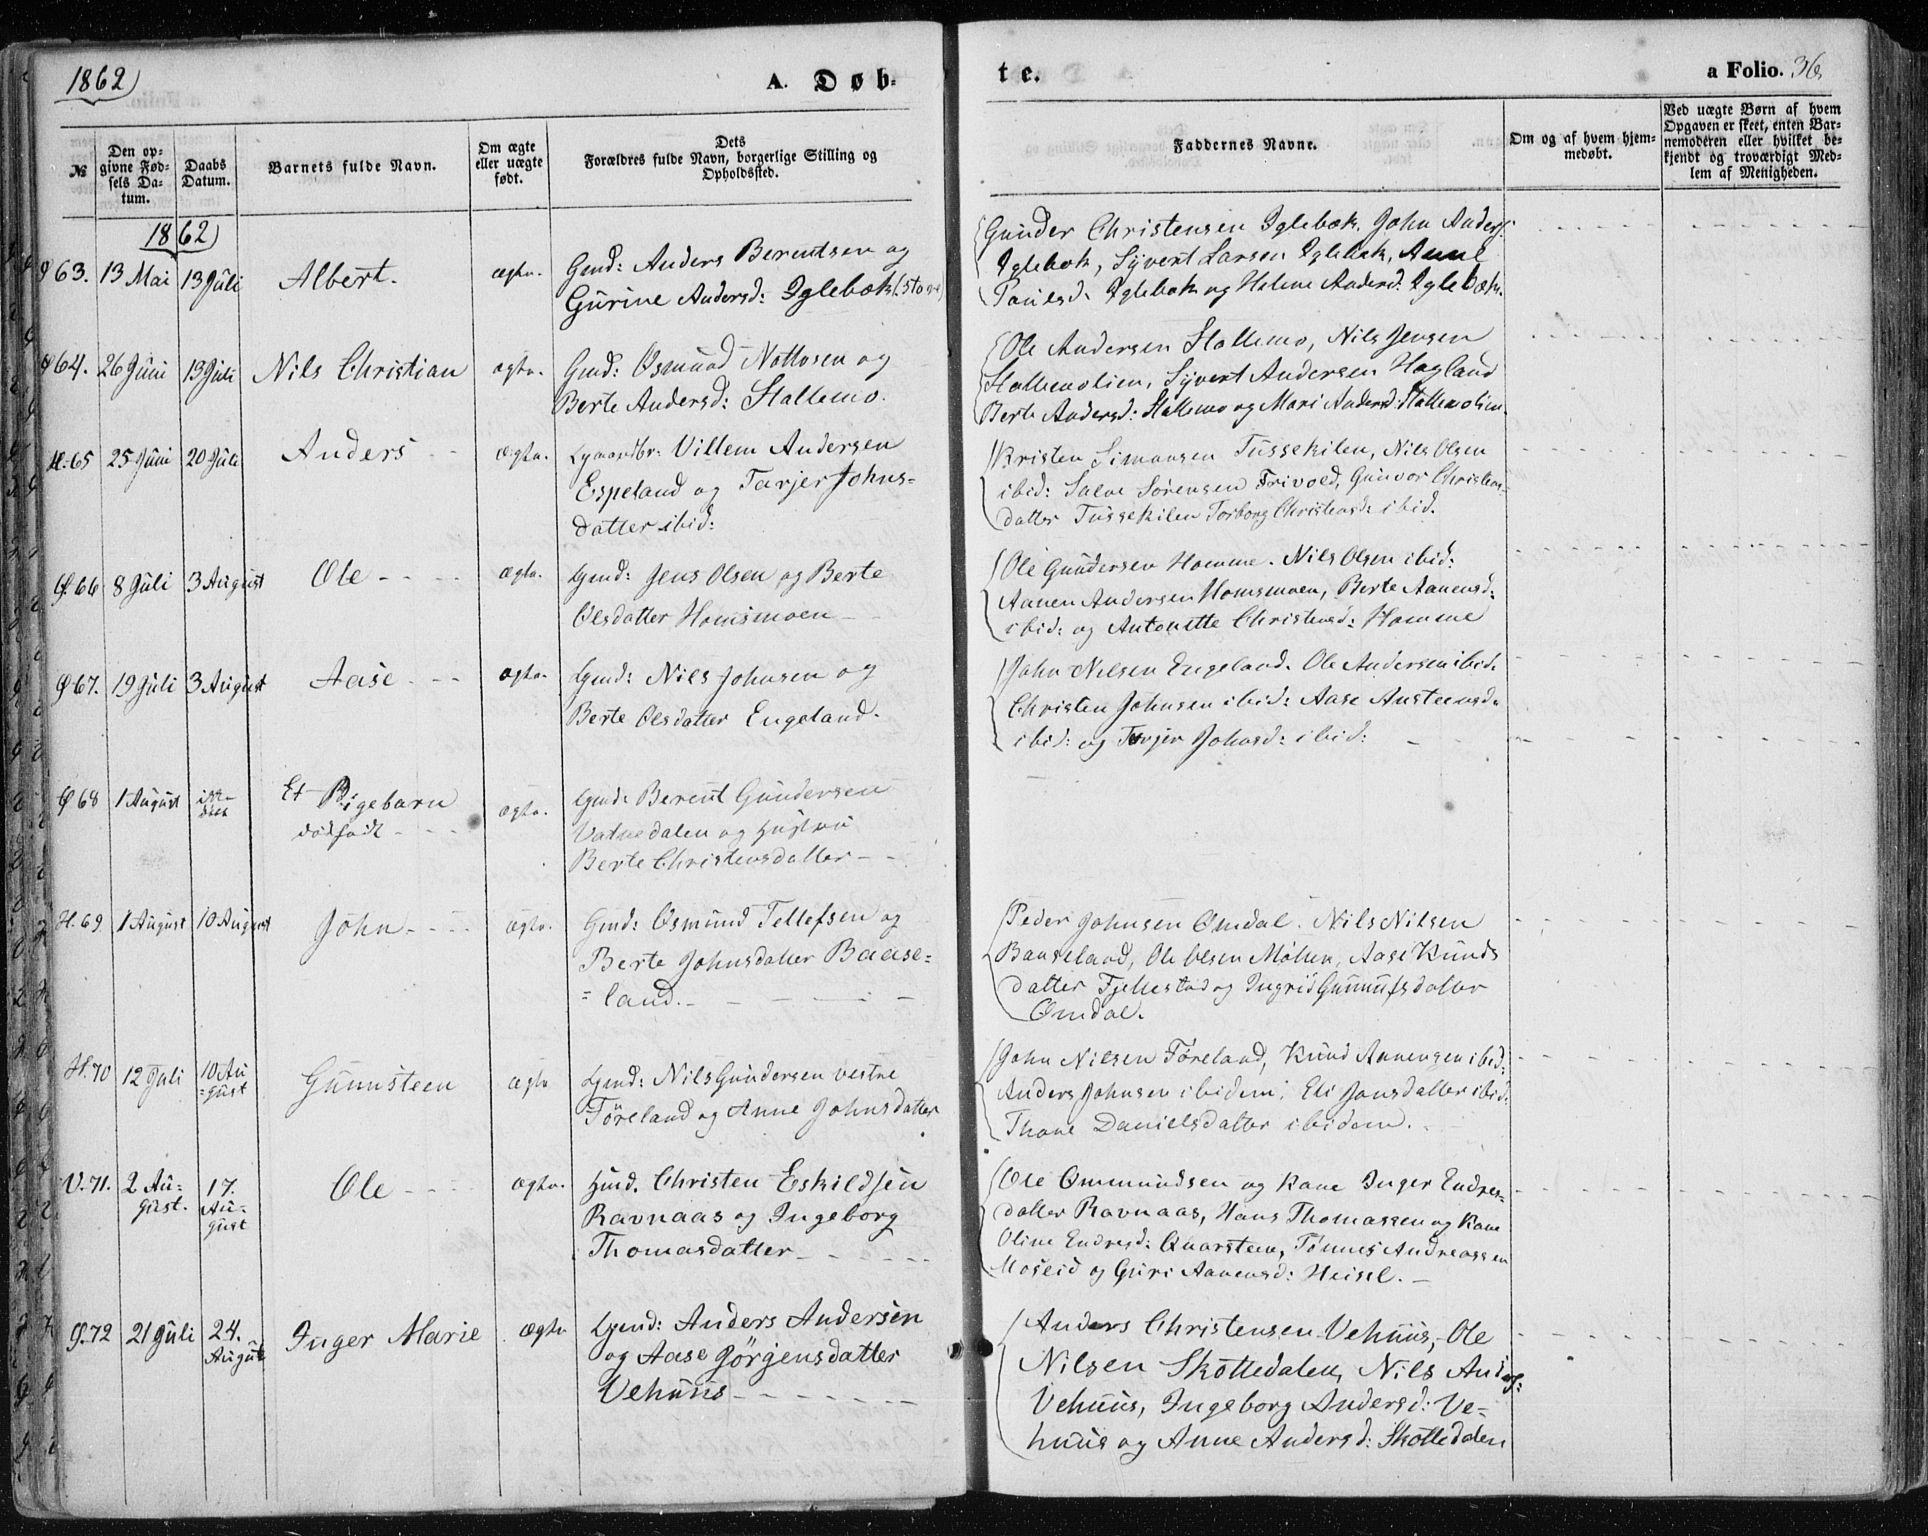 1862
A. Døb-
te.
a Folio. 36
№
Den op-
givne Fød-
sels Da-
tum.
Daabs
Datum.
Barnets fulde Navn.
Om ægte
eller uægte
født.
Dets
Forældres fulde Navn, borgerlige Stilling og
Opholdssted.
Faddernes Navne.
Om og af hvem hjem-
medøbt.
Ved uægte Børn af hvem
Opgaven er skeet, enten Bar-
nemoderen eller hvilket be-
kjendt og troværdigt Med-
lem af Menigheden.
1862
63. 13 Mai 13 Juli Albert. ægte.
Gmd: Anders Berentsen og
Gurine Andersd: Iglebæk
Gunder Christensen Iglebæk. John Anders:
Iglebæk, Syvert Larsen Iglebæk, Anne
Paulsd. Iglebæk og Helene Andersd. Iglebæk.
64. 26 Juni 13 Juli Nils Christian ægte.
Gmd: Osmund Nottosen og
Berte Andersd: Stallemo.
Ole Andersen Stallemo, Nils Jensen
Stallemolien, Syvert Andersen Hagland
Berte Andersd: Stallemo og Mari Andersd: Stallemolien.
H. 65 25 Juni 20 Juli Anders ægte.
Villem Andersen
Espeland og Tarjer Johns-
datter ibid:
Kristen Simonsen Tussekilen, Nils Olsen
ibid: Salve Sørensen Frivold, Gunvor Christens-
datter Tussekilen Torborg Christensd: ibid.
66 8 Juli 3 August Ole ægte.
Gmd: Jens Olsen og Berte
Olsdatter Homsmoen
Ole Gundersen Homme. Nils Olsen ibid:
Aanen Andersen Homsmoen, Berte Aanensd:
ibid: og Antonette Christensd: Homme
67. 19 Juli 3 August Aase ægte.
Gmd: Nils Johnsen og
Berte Olsdatter Engeland.
John Nilsen Engeland. Ole Andersen ibid.
Christen Johnsen ibid: Aase Austeensd.
ibid: og Tarjer Johnsd: ibid:
68 1 August ikke
døbt
Et Pigebarn
dødfødt ægte.
Gmd: Berent Gundersen
Vatnedalen og Hustru
Berte Christensdatter
H. 69 1 August 10 August John ægte.
Gmd: Osmund Tellefsen og
Berte Johnsdatter Baase-
=land.
Peder Johnsen Omdal. Nils Nilsen
Baaseland, Ole Olsen Møllen, Aase Knuds
datter Fjellestad og Ingrid Gunnufsdatter
Omdal.
H. 70 12 Juli 10 Au
=gust Gunnsteen ægte
Gmd: Nils Gundersen vestre
Føreland og Anne Johnsdatter
John Nilsen Føreland, Knud Aanensen ibid:
Anders Johnsen ibidem, Eli Jonsdatter ibid:
Thone Danielsdatter ibidem.
V. 71. 2 Au-
gust. 17.
Au-
gust Ole ægte.
Hmd. Christen Eskildsen
Ravnaas og Ingeborg
Thomasdatter
Ole Ommundsen og Kone Inger Endres-
datter Ravnaas, Hans Thomassen og Kone
Oline Endresd: Qvarstein, Tønnes Andreassen
Moseid og Guri Aanensd: Heisel.
72 21 Juli 24.
August Inger Marie ægte
Gmd: Anders Andersen
og Aase Jørgensdatter
Vehuus
Anders Christensen Vehuus, Ole
Nilsen Skottedalen, Nils Anders:
Vehuus, Ingeborg Andersd: Ve-
huus og Anne Andersd: Skottedalen